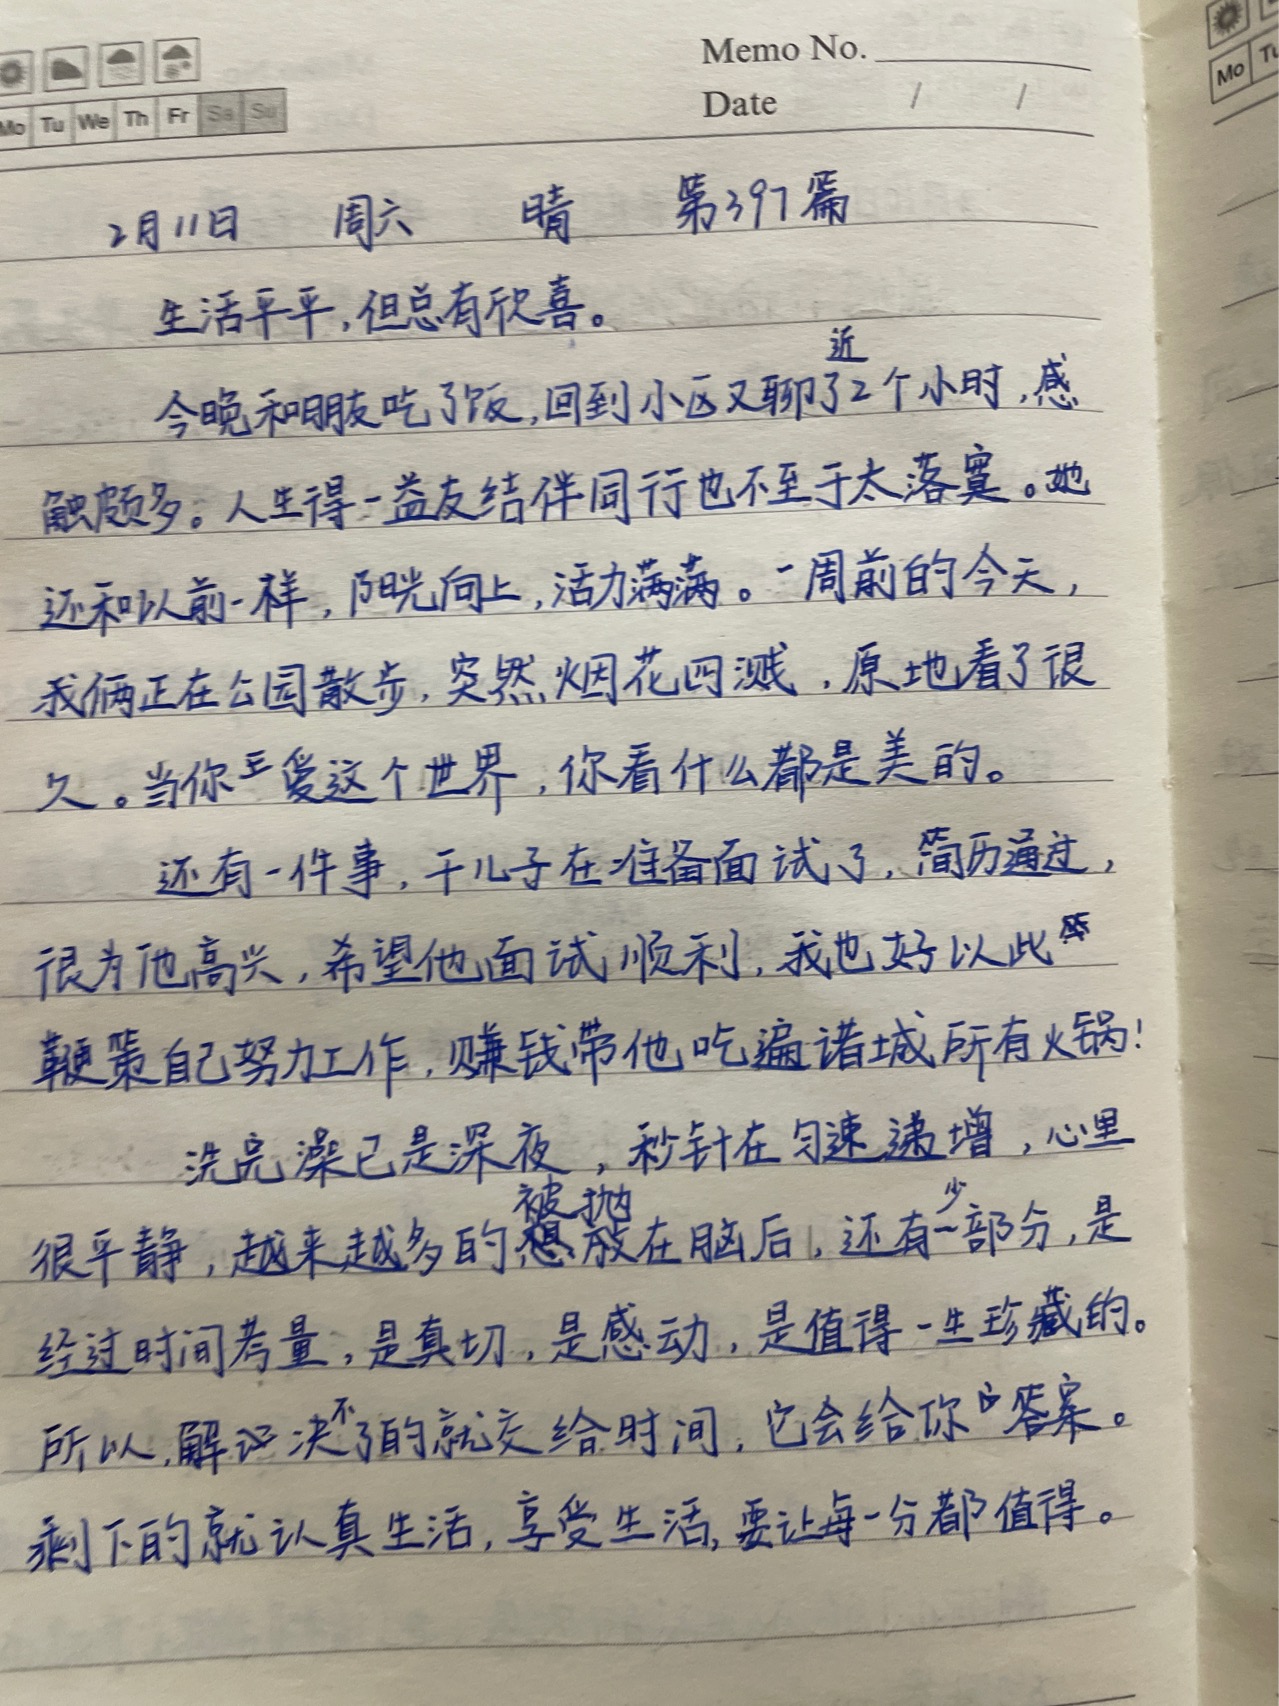 Memo No.
Date / /
Mo Tu We Th Fr Sa Su
Mo Tu
2月11日 周六 晴 第397篇
生活平平,但总有欣喜。
近
今晚和朋友吃了饭,回到小区又聊了2个小时,感
触颇多。人生得一益友结伴同行也不至于太落寞。她
还和以前一样,阳光向上,活力满满。一周前的今天,
我俩正在公园散步,突然烟花四溅,原地看了很
久。当你爱这个世界,你看什么都是美的。
还有一件事,干儿子在准备面试了,简历通过,
很为他高兴,希望他面试顺利,我也好以此
鞭策自己努力工作,赚钱带他吃遍诸城所有火锅!
洗完澡已是深夜,秒针在匀速递增,心里
被抛 少
很平静,越来越多的放在脑后,还有一部分,是
经过时间考量,是真切,是感动,是值得一生珍藏的。
不
所以,解决了的就交给时间,它会给你答案。
剩下的就认真生活,享受生活,要让每一分都值得。